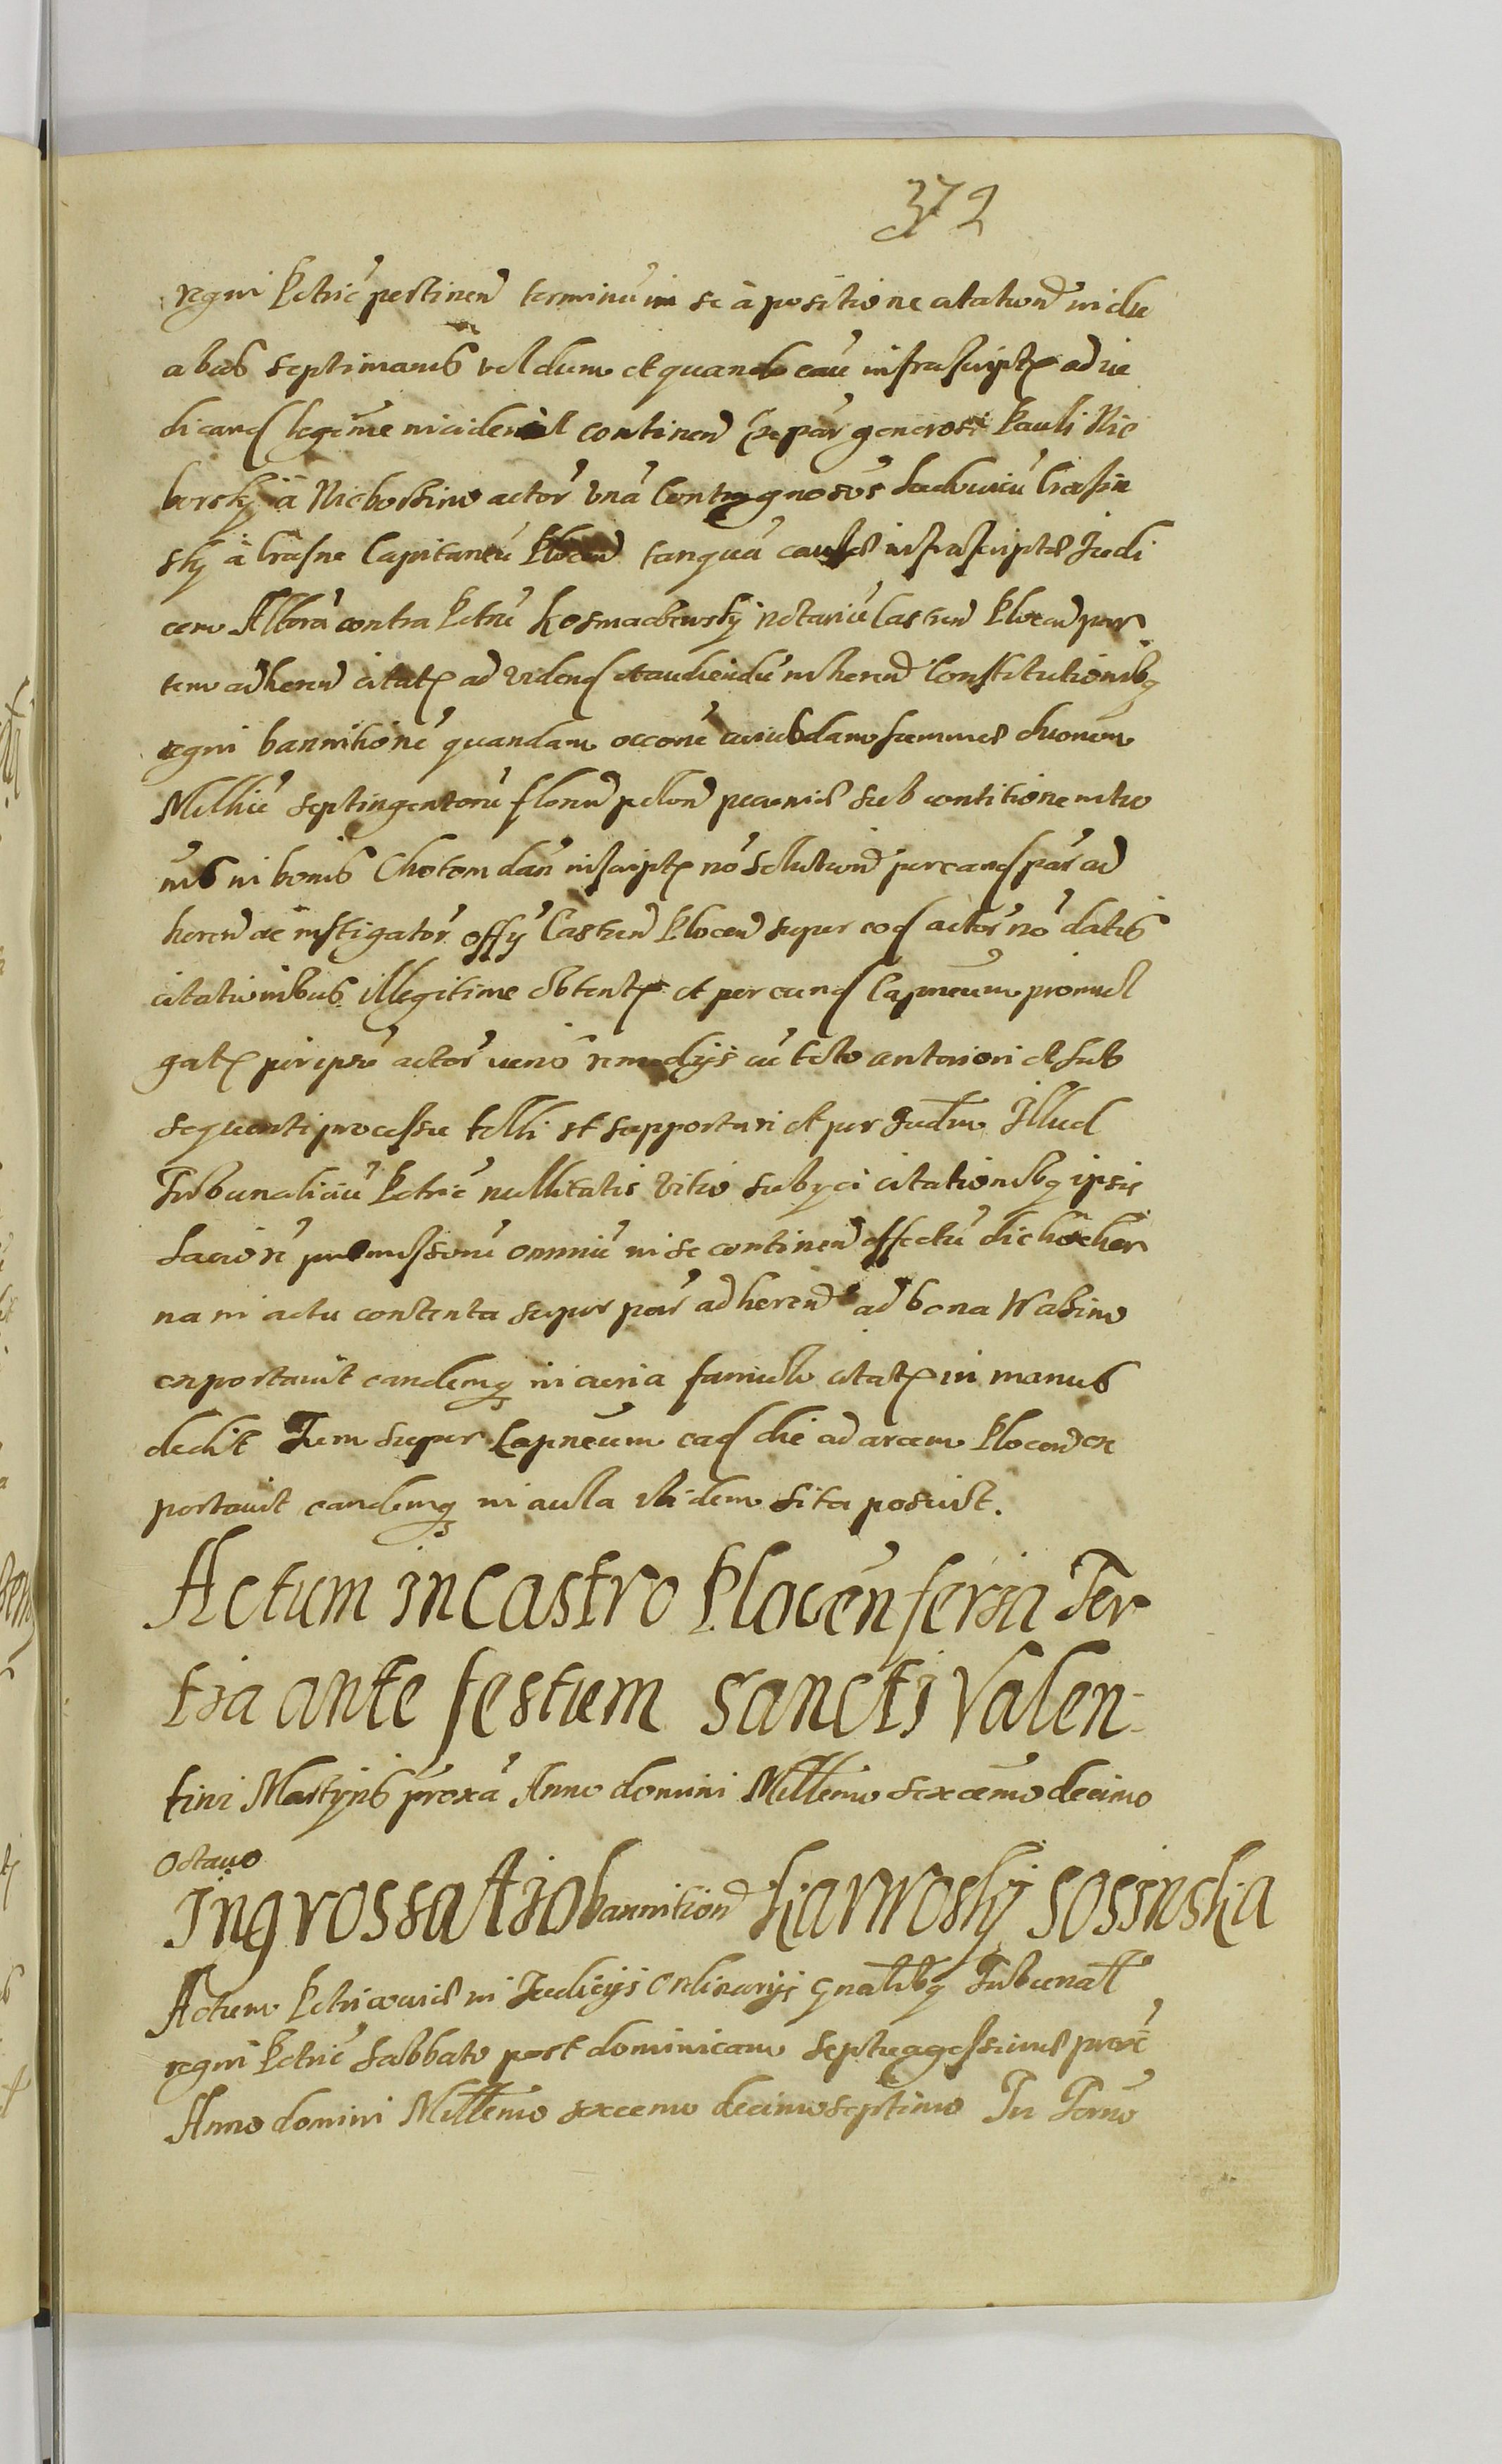 372
regni Petric pertinen terminum in se a positione citation in du
abus septimanis vel dum et quando cau infrascript ad iu
dicand legittime inciderit continen Ex par generosi Pauli Nie
borsky a Nieborzino actor Vna Contra gnosos Ludouicu Crasin
sky a Crasne Capitaneu Plocen tanquam causae infrascriptae Judi
cem Altera contra Petru Kosmaczewsky Notariu Castren Plocen par
tem adheren citat ad vidend et audiendu inheren Constitutionibq
regni bannitione quandam occone cuiusdam summae duorum
Milliu septingentoru floren polon pecuniae sub contitione
in bonis Choton dan inscript no solution per eand par ad
heren ac instigator offy Castren Plocen super eod actor no datis
citationibus illegitime obtent et per eund Capneum promul
gat per ipsu actor uero remedys cu toto anteriori et sub
sequenti processu tolli et supportari et per Judm Illud
Tribunaliciu Petric nullitatis Vitio subyci citationibq ipsis
Lacior praemissoru omniu in se continen effectu die hester
na in actu contenta super par adheren ad bona Wabino
exportauit eandemq in curia famulo citat in manus
dedit Tum super Capneum ead die ad arcem Plocen ex
portauit eandemq in aula ibidem sita posuit.
Actum in Castro Plocen feria Ter
tia ante festum Sancti Valen-
tini Martyris proxa Anno domini Millemo sexcemo decimo
octauo
Ingrossatio bannition Karwosky Sosinska
Actum Petricouiae in Judicys Ordinarys gnalibq Tribunal
regni Petric Sabbato post dominicam Septuagessimae prox
Anno domini Millemo sexcemo decimo septimo In Termo